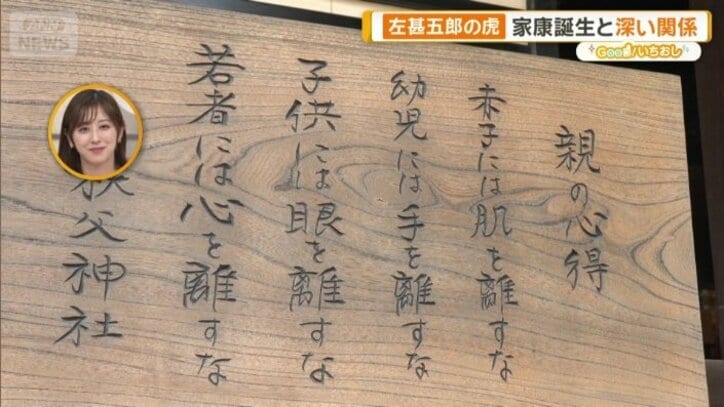 NEWS
左甚五郎の虎
家康誕生と深い関係
Good!いちおし
親の心得
赤子には肌を離すな
幼児には手を離すな
子供には眼を離すな
若者には心を離すな
秩父神社